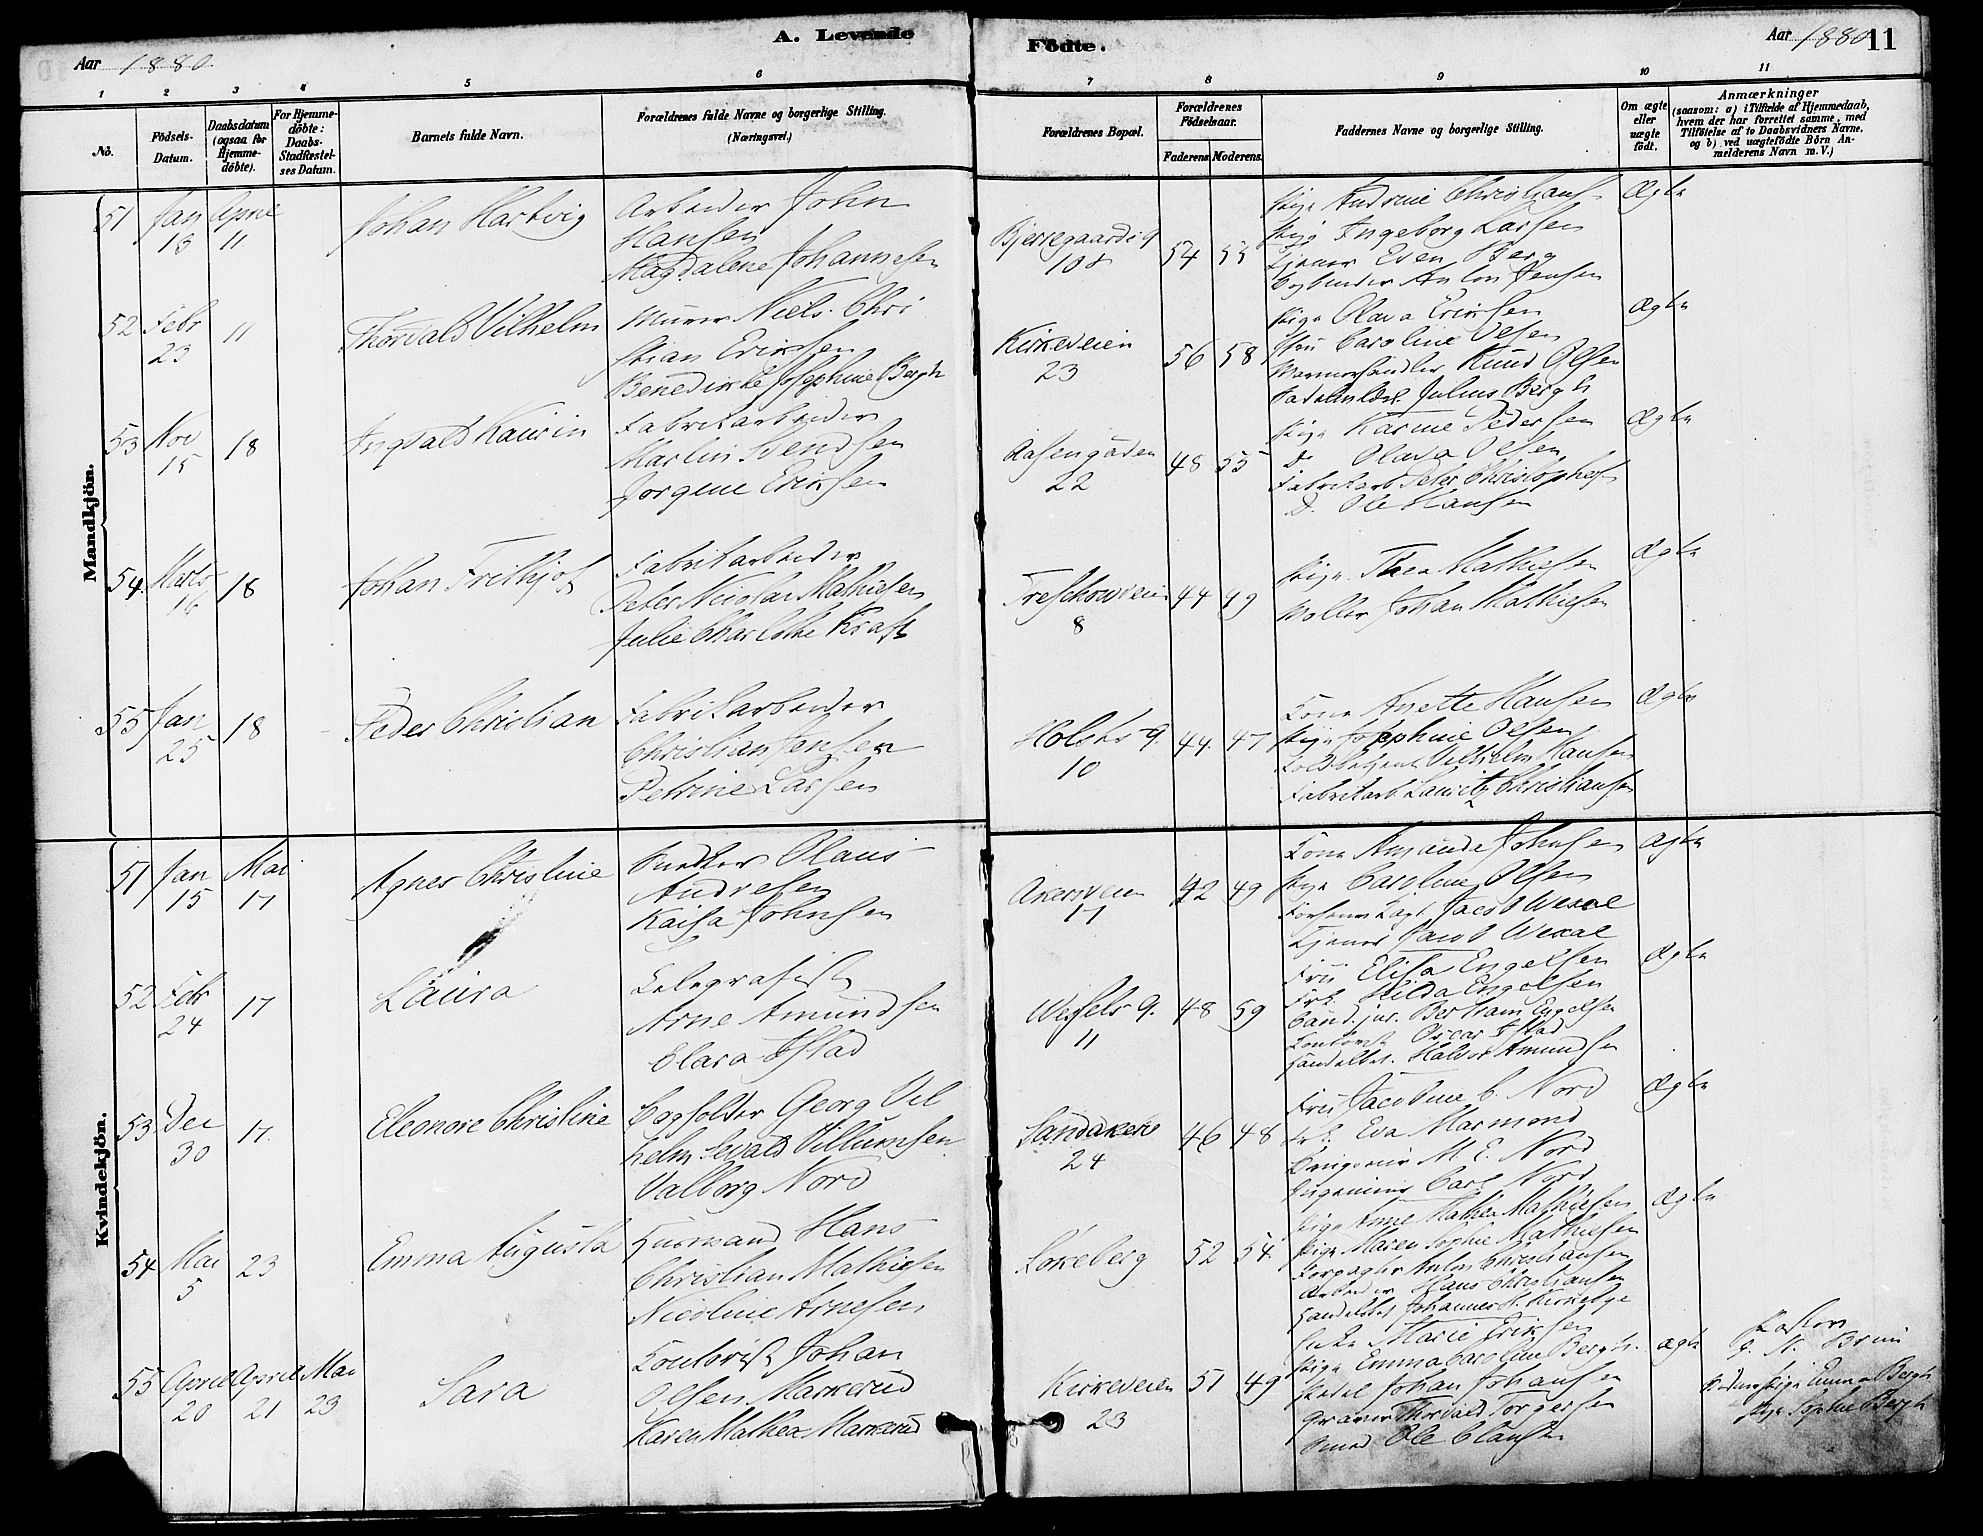 Aar 1880
A. Levende
Födte.
Aar 1880
11
1 2 3 4 5 6 7 8 9 10 11
No.
Födsels-
Datum.
Daabsdatum
(ogsaa for
Hjemme-
döbte).
For Hjemme-
döbte:
Daabs-
Stadfæstel-
ses Datum.
Barnets fulde Navn.
Forældrenes fulde Navne og borgerlige Stilling.
(Næringsvei.)
Forældrenes Bopæl.
Forældrenes
Födselsaar.
Faderens Moderens
Faddernes Navne og borgerlige Stilling.
Om ægte
eller
uægte
födt.
Anmærkninger
(saasom: a) i Tilfælde af Hjemmedaab,
hvem der har forrettet samme, med
Tilföielse af to Daabsvidners Navne,
og b) ved uægtefödte Börn An-
melderens Navn m. V.)
Mandkjön.
51 Jan April
Johan Hartvig
Arbeider John
Hansen
Magdalene Johannesen
11
Bjerregaards g
108
54
Pige Andrine Christians
Pige Ingeborg Larsen
Tjener Even Berg
Anton Jensen
Ægte
52 Febr
23
11
Thorvald Vilhelm
Murer Niels Chri
stian Eriksen
Benedikte Josephine Bergh
Kirkeveien
23
56 58
Pige Olava Eriksen
Fru Caroline Olsen
Marmorhandler Knud Olsen
Julius Bergh
Ægte
53 Nov
15
18
Ingvald Kaurin
Fabrikarbeider
Martin Svendsen
Jørgine Eriksen
Aasengaden
22
48 55
Pige Karine Pedersen
D. Olava Olsen
Fabrikarb Peter Christophers
D. Ole Hansen
Ægte
54 Marts
16
18
Johan Frithjof
Fabrikarbeider
Peter Nicolai Mathiesen
Julie Charlotte Kraft
Treschowveien
8
44 49
Pige Thea Mathiesen
Møller Johan Mathiesen
Ægte
55 Jan
25
18
Peder Christian
Fabrikarbeider
Christian Jensen
Petrine Larsen
Holsts g.
10
44 47
Kone Anette Hansen
Pige Josephine Olsen
Vilhelm Hansen
Fabrikarb. Lauritz Christiansen
Ægte
Kvindekjön.
51 Jan Mai
15 17
Agnes Christine
Olaus
Andresen
Kaisa Johnsen
Akersveien
17
42 49
Kone Amanda Johnsen
Pige Caroline Olsen
Jacob Wexal
Tjener Jacob Wexal
Ægte
52 Febr
24
17
Laura
Telegrafist
Arne Amundsen
Clara Istad
Wessels g.
11
48 59
Fru Elisa Engelsen
Frk. Hilda Engelsen
Cand. jur. Bertram Engelsen
Kontorist Oscar Istad
Handelsb. Halvor Amundsen
Ægte
53 Dec
30
17
Eleonore Christine
Bogholder Georg Vil
helm Sevald Villumsen
Valborg Nord
Sandakerv
24
46 48
Fru Jacobine C. Nord
Frk. Eva Marmond
M. E. Nord
Ingeniør Carl Nord
Ægte
54 Mai
5
23
Emma Augusta
Husmand Hans
Christian Mathiesen
Nicoline Arnesen
Lokeberg
52 54
Pige Anne Mathea Mathiesen
Pige Maren Sophie Mathiesen
Forpagter Anton Christiansen
Arbeider Hans Christiansen
Handelsb Johannes H. Kirkeby
Ægte
55 April April Mai
20 21 23
Sara
Kontorist Johan
Olsen Markerud
Karen Mathea Markerud
Kirkeveien
23
51 49
Enke Marie Eriksen
Pige Emma Caroline Bergh.
Johan Johansen
Graver Thorvald Torgersen
Ole Clausen
Ægte
Pastor
G. N. Bruu
Pige Emma Bergh
Pige Sophie Bergh